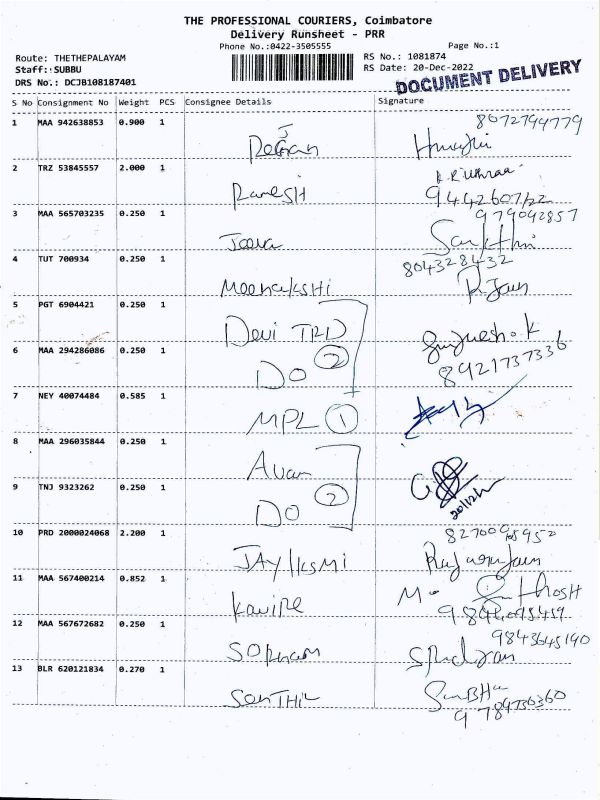 THE PROFESSIONAL COURIERS, Coimbatore
Delivery Runsheet - PRR
Phone No.:0422-3505555
Page No.:1
Route: THETHEPALAYAM
RS No.: 1081874
Staff: SUBBU
RS Date: 20-Dec-2022
DRS No.: DCJB108187401
DOCUMENT DELIVERY
S No Consignment No Weight PCS Consignee Details Signature
1 MAA 942638853 0.900 1
8072794779
2 TRZ 53845557 2.000 1
Ramesh
3 MAA 565703235 0.250 1
979092857
Jeeva Sankthi
4 TUT 700934 0.250 1
804328432
Meenakshi R.Jain
5 PGT 6904421 0.250 1
Devi TRD
6 MAA 294286086 0.250 1
DO 2 8921737336
7 NEY 40074484 0.585 1
MPL 1
8 MAA 296035844 0.250 1
9 TNJ 9323262 0.250 1
DO 2 20/12/
10 PRD 2000024068 2.200 1
11 MAA 567400214 0.852 1
12 MAA 567672682 0.250 1
9843645190
13 BLR 620121834 0.270 1
Senthil